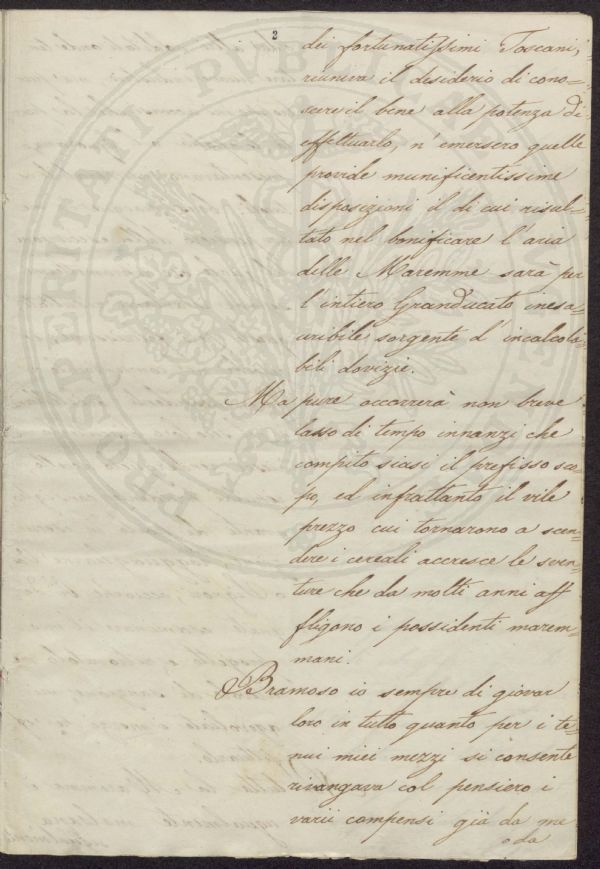 2
dei fortunatissimi Toscani,
riuniva il desiderio di cono=
scere il bene alla potenza di
effettuarlo, n'emersero quelle
provide munificentissime
disposizioni il di cui risul=
tato nel bonificare l'aria
delle Maremme sarà per
l'intiero Granducato inesa=
uribile sorgente d'incalcola=
bili dovizie.
Ma pure occorrerà non breve
lasso di tempo innanzi che
compito siasi il prefisso sco=
po, ed infrattanto il vile
prezzo cui tornarono a scen=
dere i cereali accresce le sven=
ture che da molti anni aff
fligono i possidenti marem=
mani.
Bramoso io sempre di giovar
loro in tutto quanto per i te=
nui miei mezzi si consente
rivangava col pensiero i
varii compensi già da me
o da
PROSPERITATI PUBLICAE